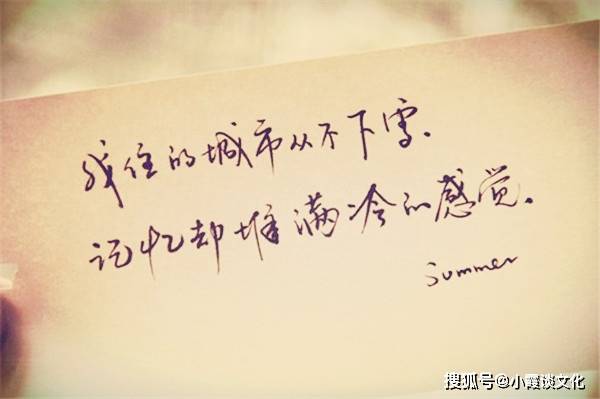 我住的城市从不下雪、
记忆却堆满冷的感觉。
summer
搜狐号@小霞谈文化